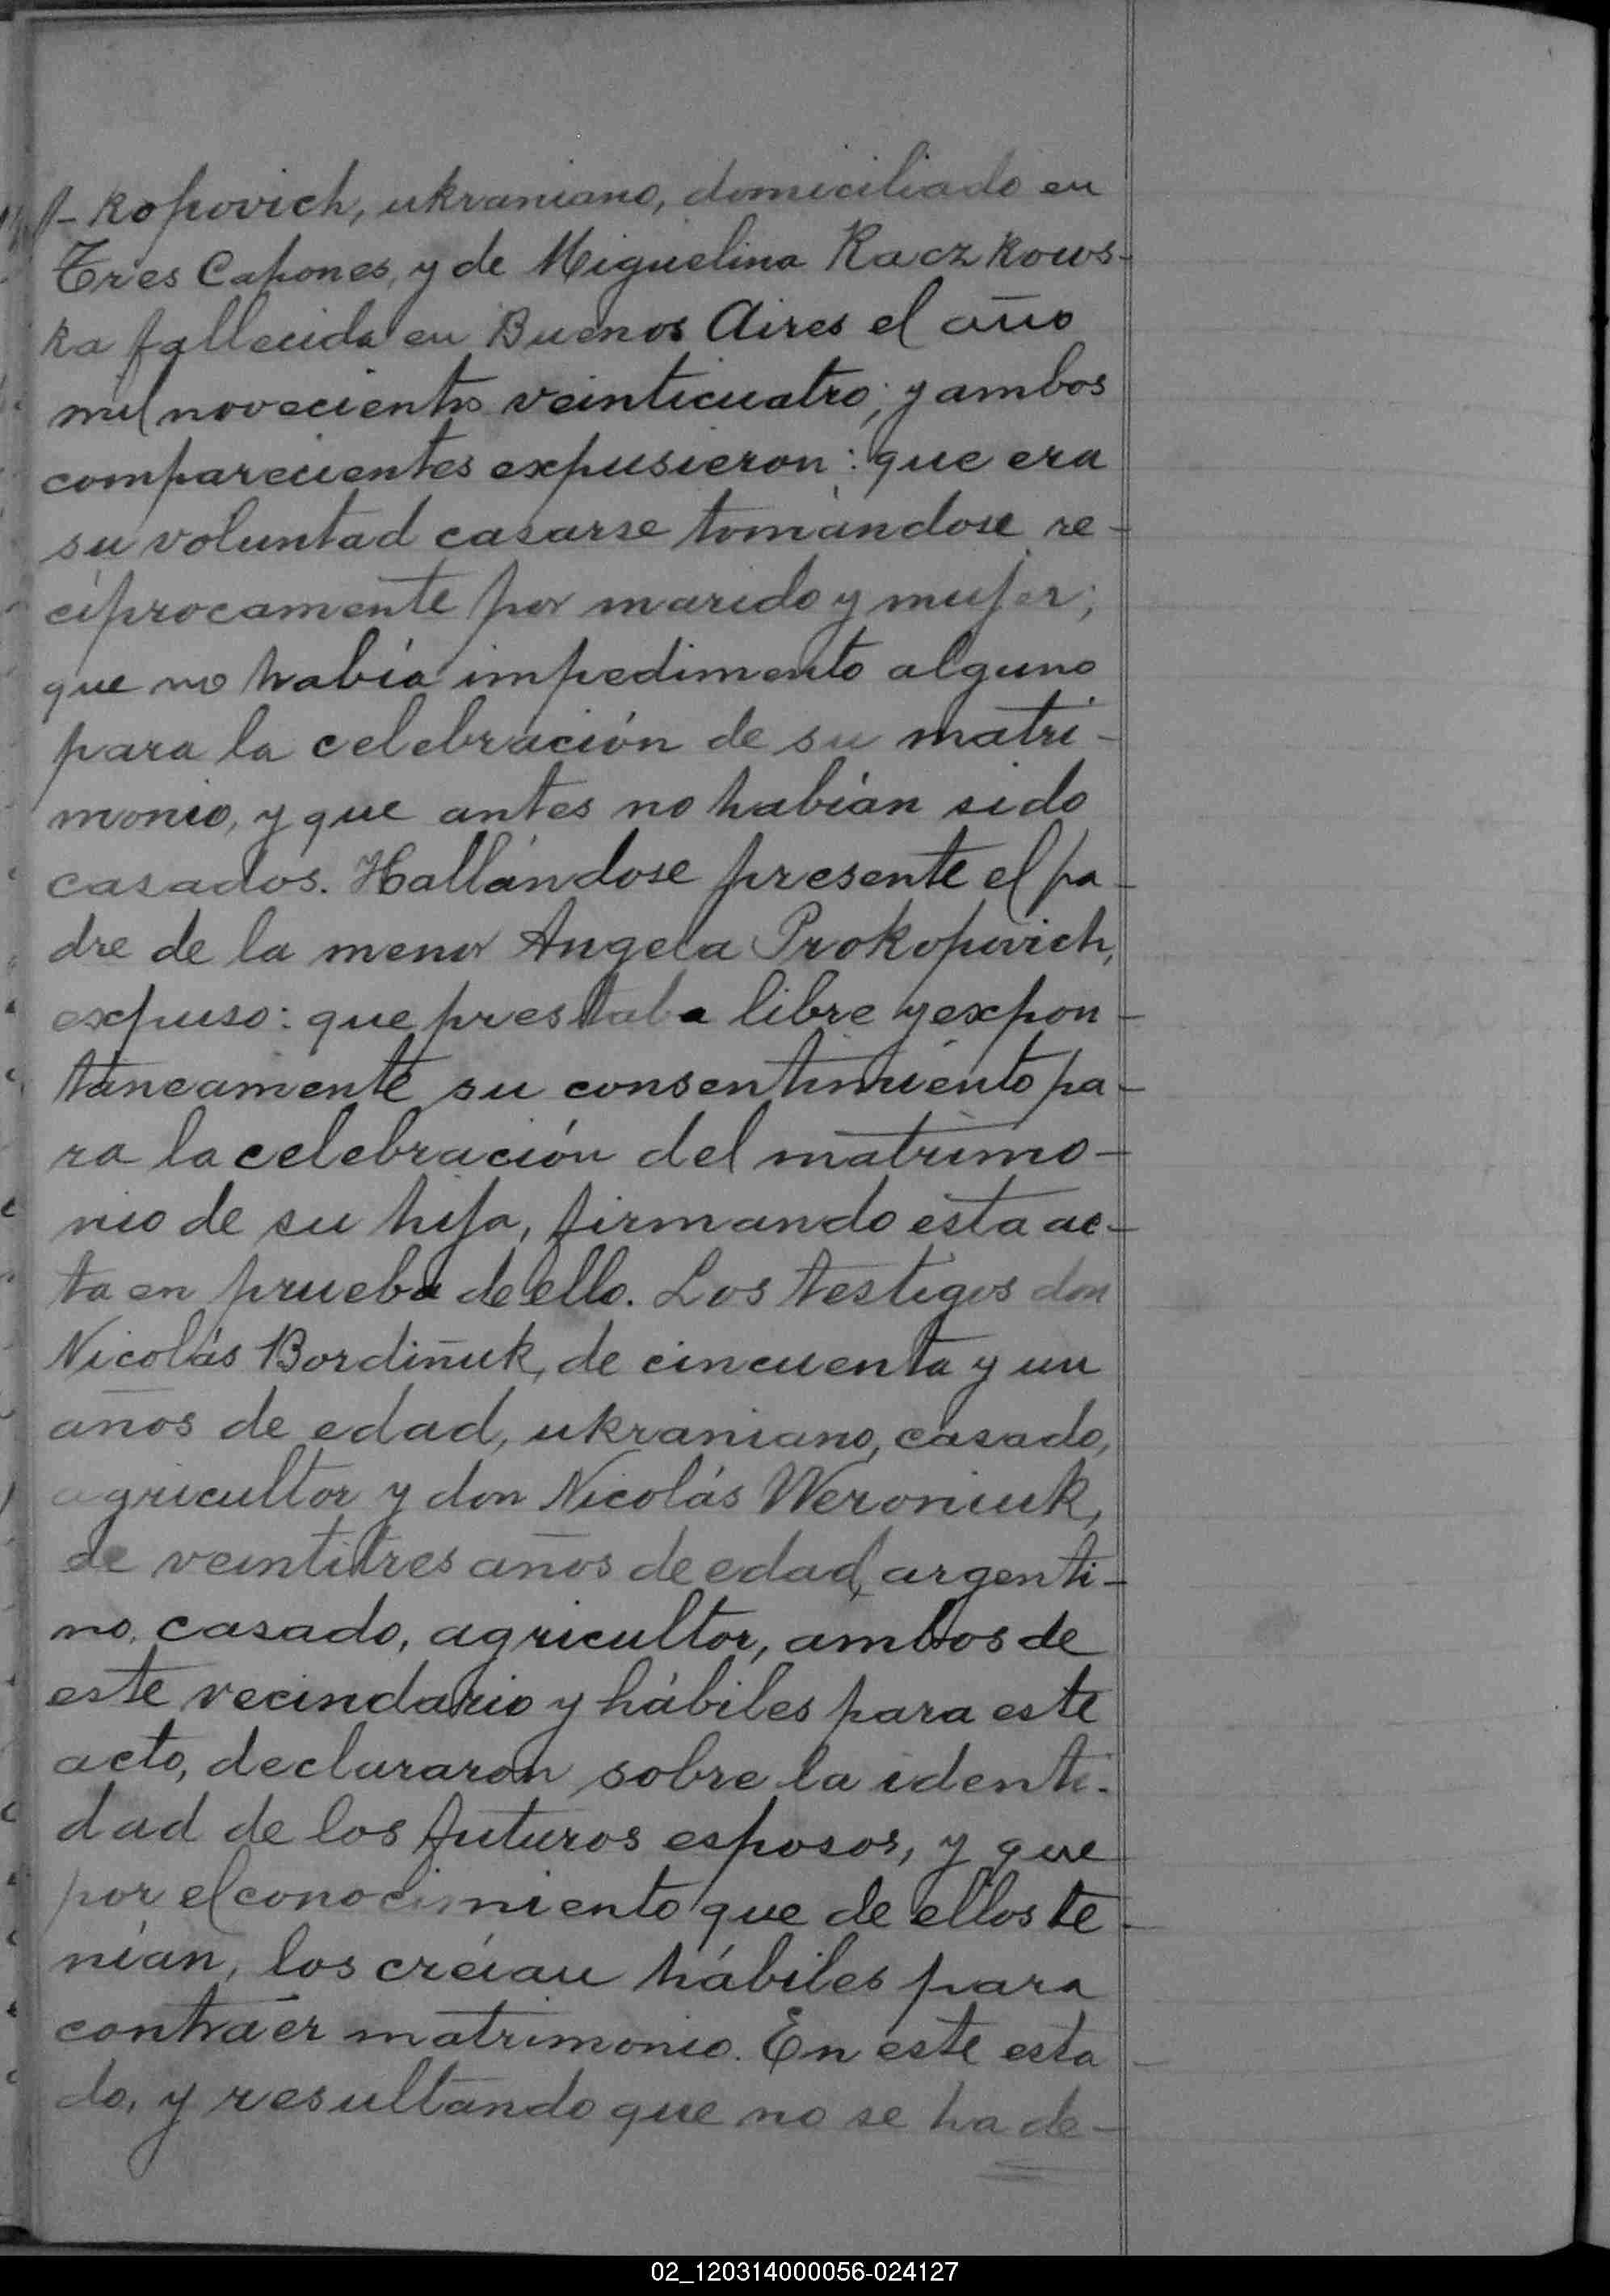 kopovich, ukraniano, domiciliado en
Tres Capones, y de Miguelina Raczkows-
ka fallecida en Buenos Aires el año
mil novecientos veinticuatro; y ambos
comparecientes expusieron: que era
su voluntad casarse tomándose re-
cíprocamente por marido y mujer;
que no había impedimento alguno
para la celebración de su matri-
monio, y que antes no habían sido
casados. Hallándose presente el pa-
dre de la menor Angela Prokopovich,
expuso: que prestaba libre y expon-
táneamente su consentimiento pa-
ra la celebración del matrimo-
nio de su hija, firmando esta ac-
ta en prueba de ello. Los testigos don
Nicolás Bordiñuk, de cincuenta y un
años de edad, ukraniano, casado,
agricultor y don Nicolás Weroniuk,
de veintitres años de edad, argenti-
no, casado, agricultor, ambos de
este vecindario y hábiles para este
acto, declararon sobre la identi-
dad de los futuros esposos, y que
por el conocimiento que de ellos te-
nían, los creían hábiles para
contraer matrimonio. En este esta-
do, y resultando que no se ha de-
02_120314000056-024127